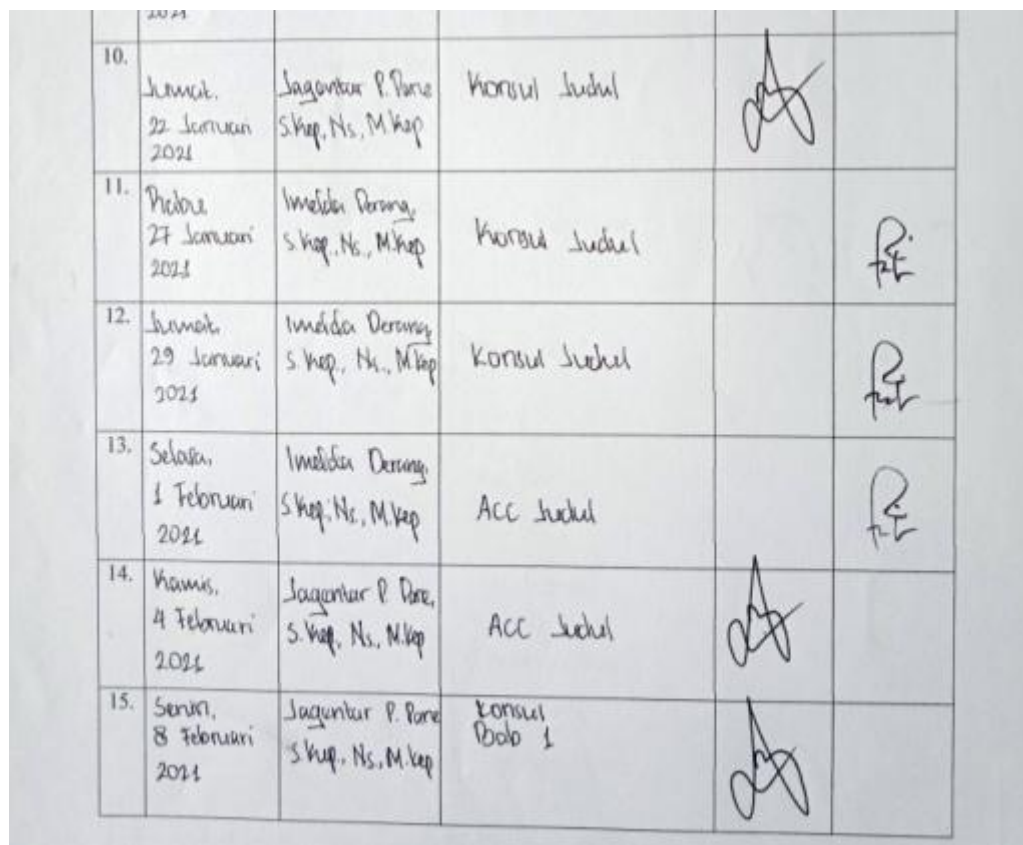 2021
10.
Jumat,
22 Januari
2021
Jagentar P. Pane
S.Kep, Ns, M.Kep
Konsul Judul
11.
Rabu
27 Januari
2021
Imelda Derang,
S.Kep, Ns., M.Kep
Konsul Judul
12.
Jumat,
29 Januari
2021
Imelda Derang,
S.Kep., Ns., M.Kep
Konsul Judul
13.
Selasa,
1 Februari
2021
Imelda Derang,
S.Kep, Ns, M.Kep
ACC Judul
14.
Kamis,
4 Februari
2021
Jagentar P. Pane,
S.Kep, Ns, M.Kep
ACC Judul
15.
Senin,
8 Februari
2021
Jagentar P. Pane
S.Kep., Ns, M.Kep
Konsul
Bab 1